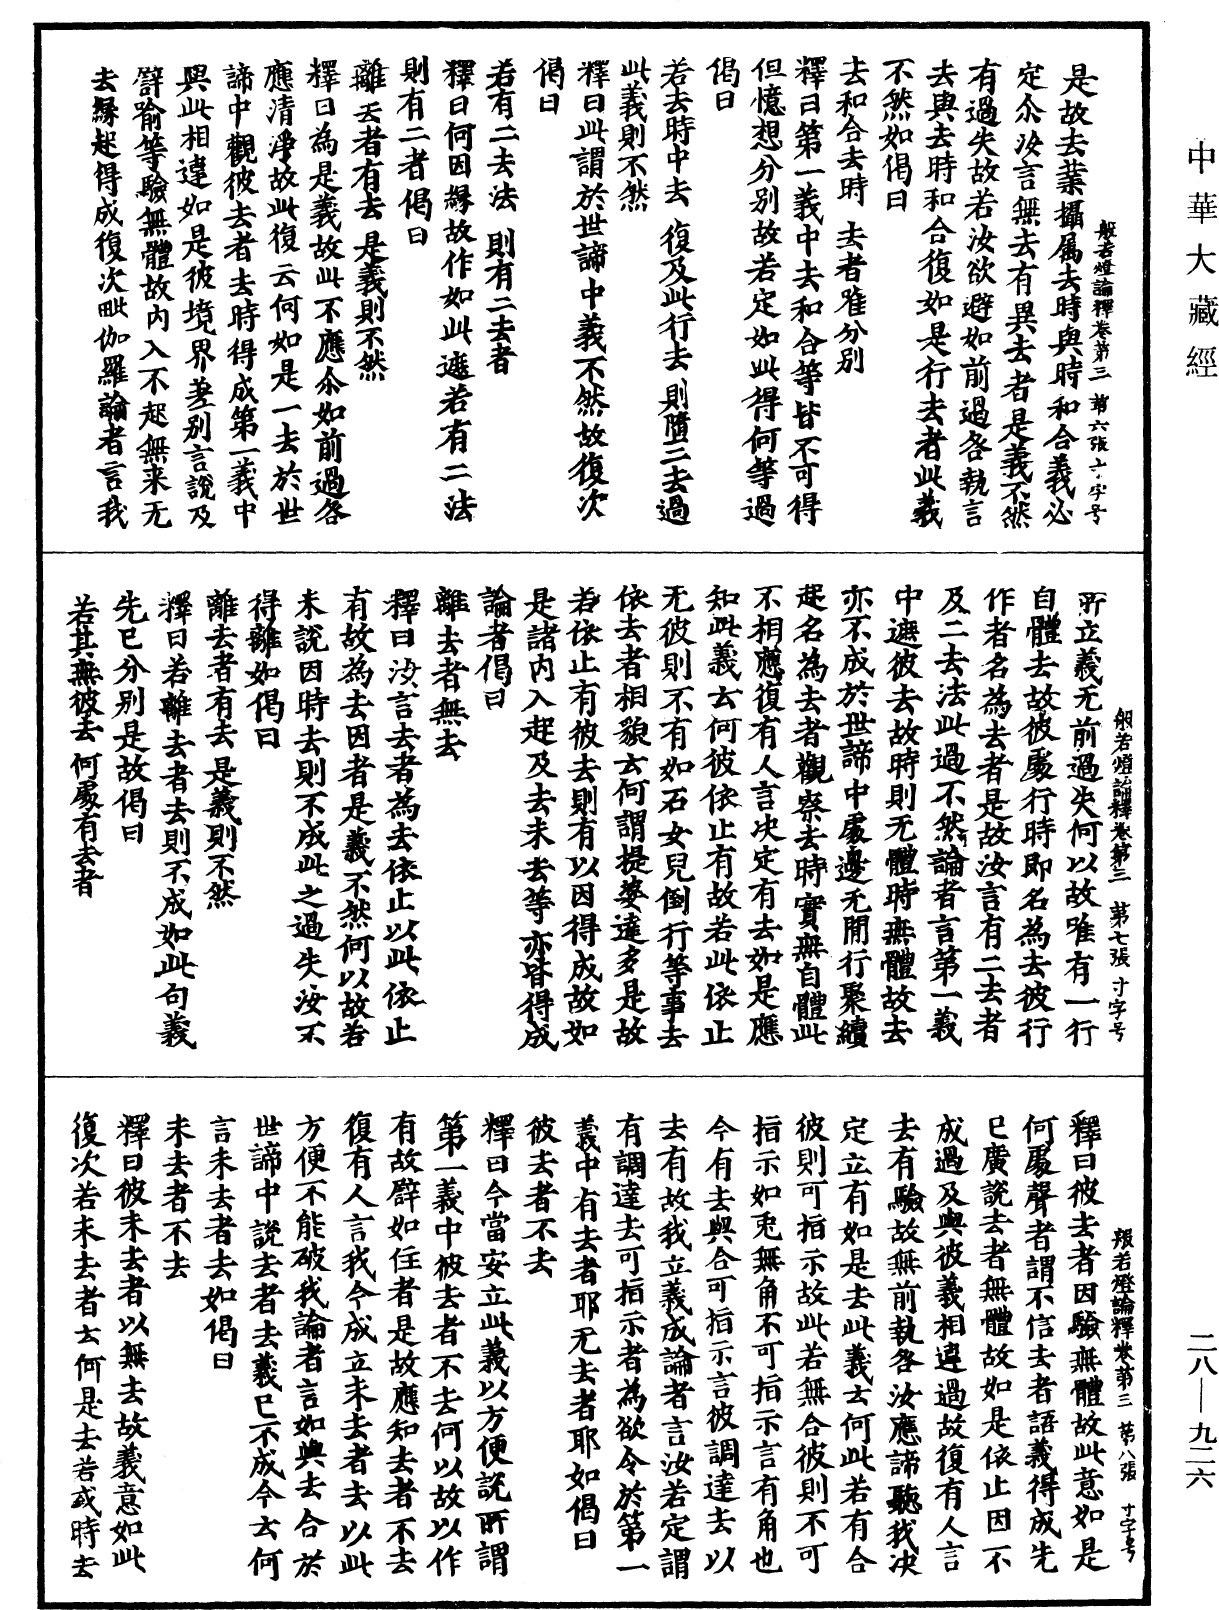 中華大藏經
般若燈論釋卷第三 第六張 寸字号
是故去業攝属去時與時和合義必
定尒汝言無去有異去者是義不然
有過失故若汝欲避如前過咎執言
去與去時和合復如是行去者此義
不然如偈曰
去和合去時 去者唯分别
釋曰第一義中去和合等皆不可得
但憶想分别故若定如此得何等過
偈曰
若去時中去 復及此行去 則墮二去過
此義則不然
釋曰此謂於世諦中義不然故復次
偈曰
若有二去法 則有二去者
釋曰何因緣故作如此遮若有二法
則有二者偈曰
離去者有去 是義則不然
釋曰為是義故此不應尒如前過咎
應清淨故此復云何如是一去於世
諦中觀彼去者去時得成第一義中
與此相違如是彼境界差别言說及
譬喻等驗無體故内入不起無来无
去緣起得成復次毗伽羅論者言我
般若燈論釋卷第三 第七張 寸字号
所立義无前過失何以故唯有一行
自體去故彼處行時即名為去彼行
作者名為去者是故汝言有二去者
及二去法此過不然論者言第一義
中遮彼去故時則无體時無體故去
亦不成於世諦中處邊无間行聚續
起名為去者觀察去時實無自體此
不相應復有人言決定有去如是應
知此義云何彼依止有故若此依止
无彼則不有如石女兒倒行等事去
依去者相貌云何謂提婆達多是故
若依止有彼去則有以因得成故如
是諸内入起及去未去等亦皆得成
論者偈曰
離去者無去
釋曰汝言去者為去依止以此依止
有故為去因者是義不然何以故若
未說因時去則不成此之過失汝不
得離如偈曰
離去者有去 是義則不然
釋曰若離去者去則不成如此句義
先已分别是故偈曰
若其無彼去 何處有去者
般若燈論釋卷第三 第八張 寸字号
釋曰彼去者因驗無體故此意如是
何處聲者謂不信去者語義得成先
已廣說去者無體故如是依止因不
成過及與彼義相違過故復有人言
去有驗故無前執咎汝應諦聽我決
定立有如是去此義云何此若有合
彼則可指示故此若無合彼則不可
指示如兎無角不可指示言有角也
今有去與合可指示言彼調達去以
去有故我立義成論者言汝若定謂
有調達去可指示者為欲令於第一
義中有去者耶无去者耶如偈曰
彼去者不去
釋曰今當安立此義以方便說所謂
第一義中彼去者不去何以故以作
有故譬如住者是故應知去者不去
復有人言我今成立未去者去以此
方便不能破我論者言如與去合於
世諦中說去者去義已不成今云何
言未去者去如偈曰
未去者不去
釋曰彼未去者以無去故義意如此
復次若未去者云何是去若或時去
二八—九二六